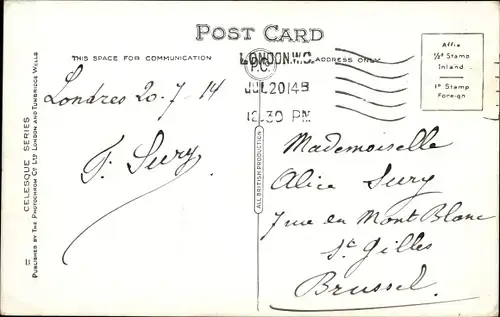 POST CARD
THIS SPACE FOR COMMUNICATION
ADDRESS ONLY
LONDON.W.C.
JUL 20 14
12.30 PM
Affix
½d Stamp
Inland
1d Stamp
Foreign
CELESQUE SERIES
PUBLISHED BY THE PHOTOCHROM CO. LTD LONDON AND TUNBRIDGE WELLS
ALL BRITISH PRODUCTION
Londres 20-7-14
F. Sury
Mademoiselle
Alice Sury
7 rue du Mont Blanc
St Gilles
Brussel.